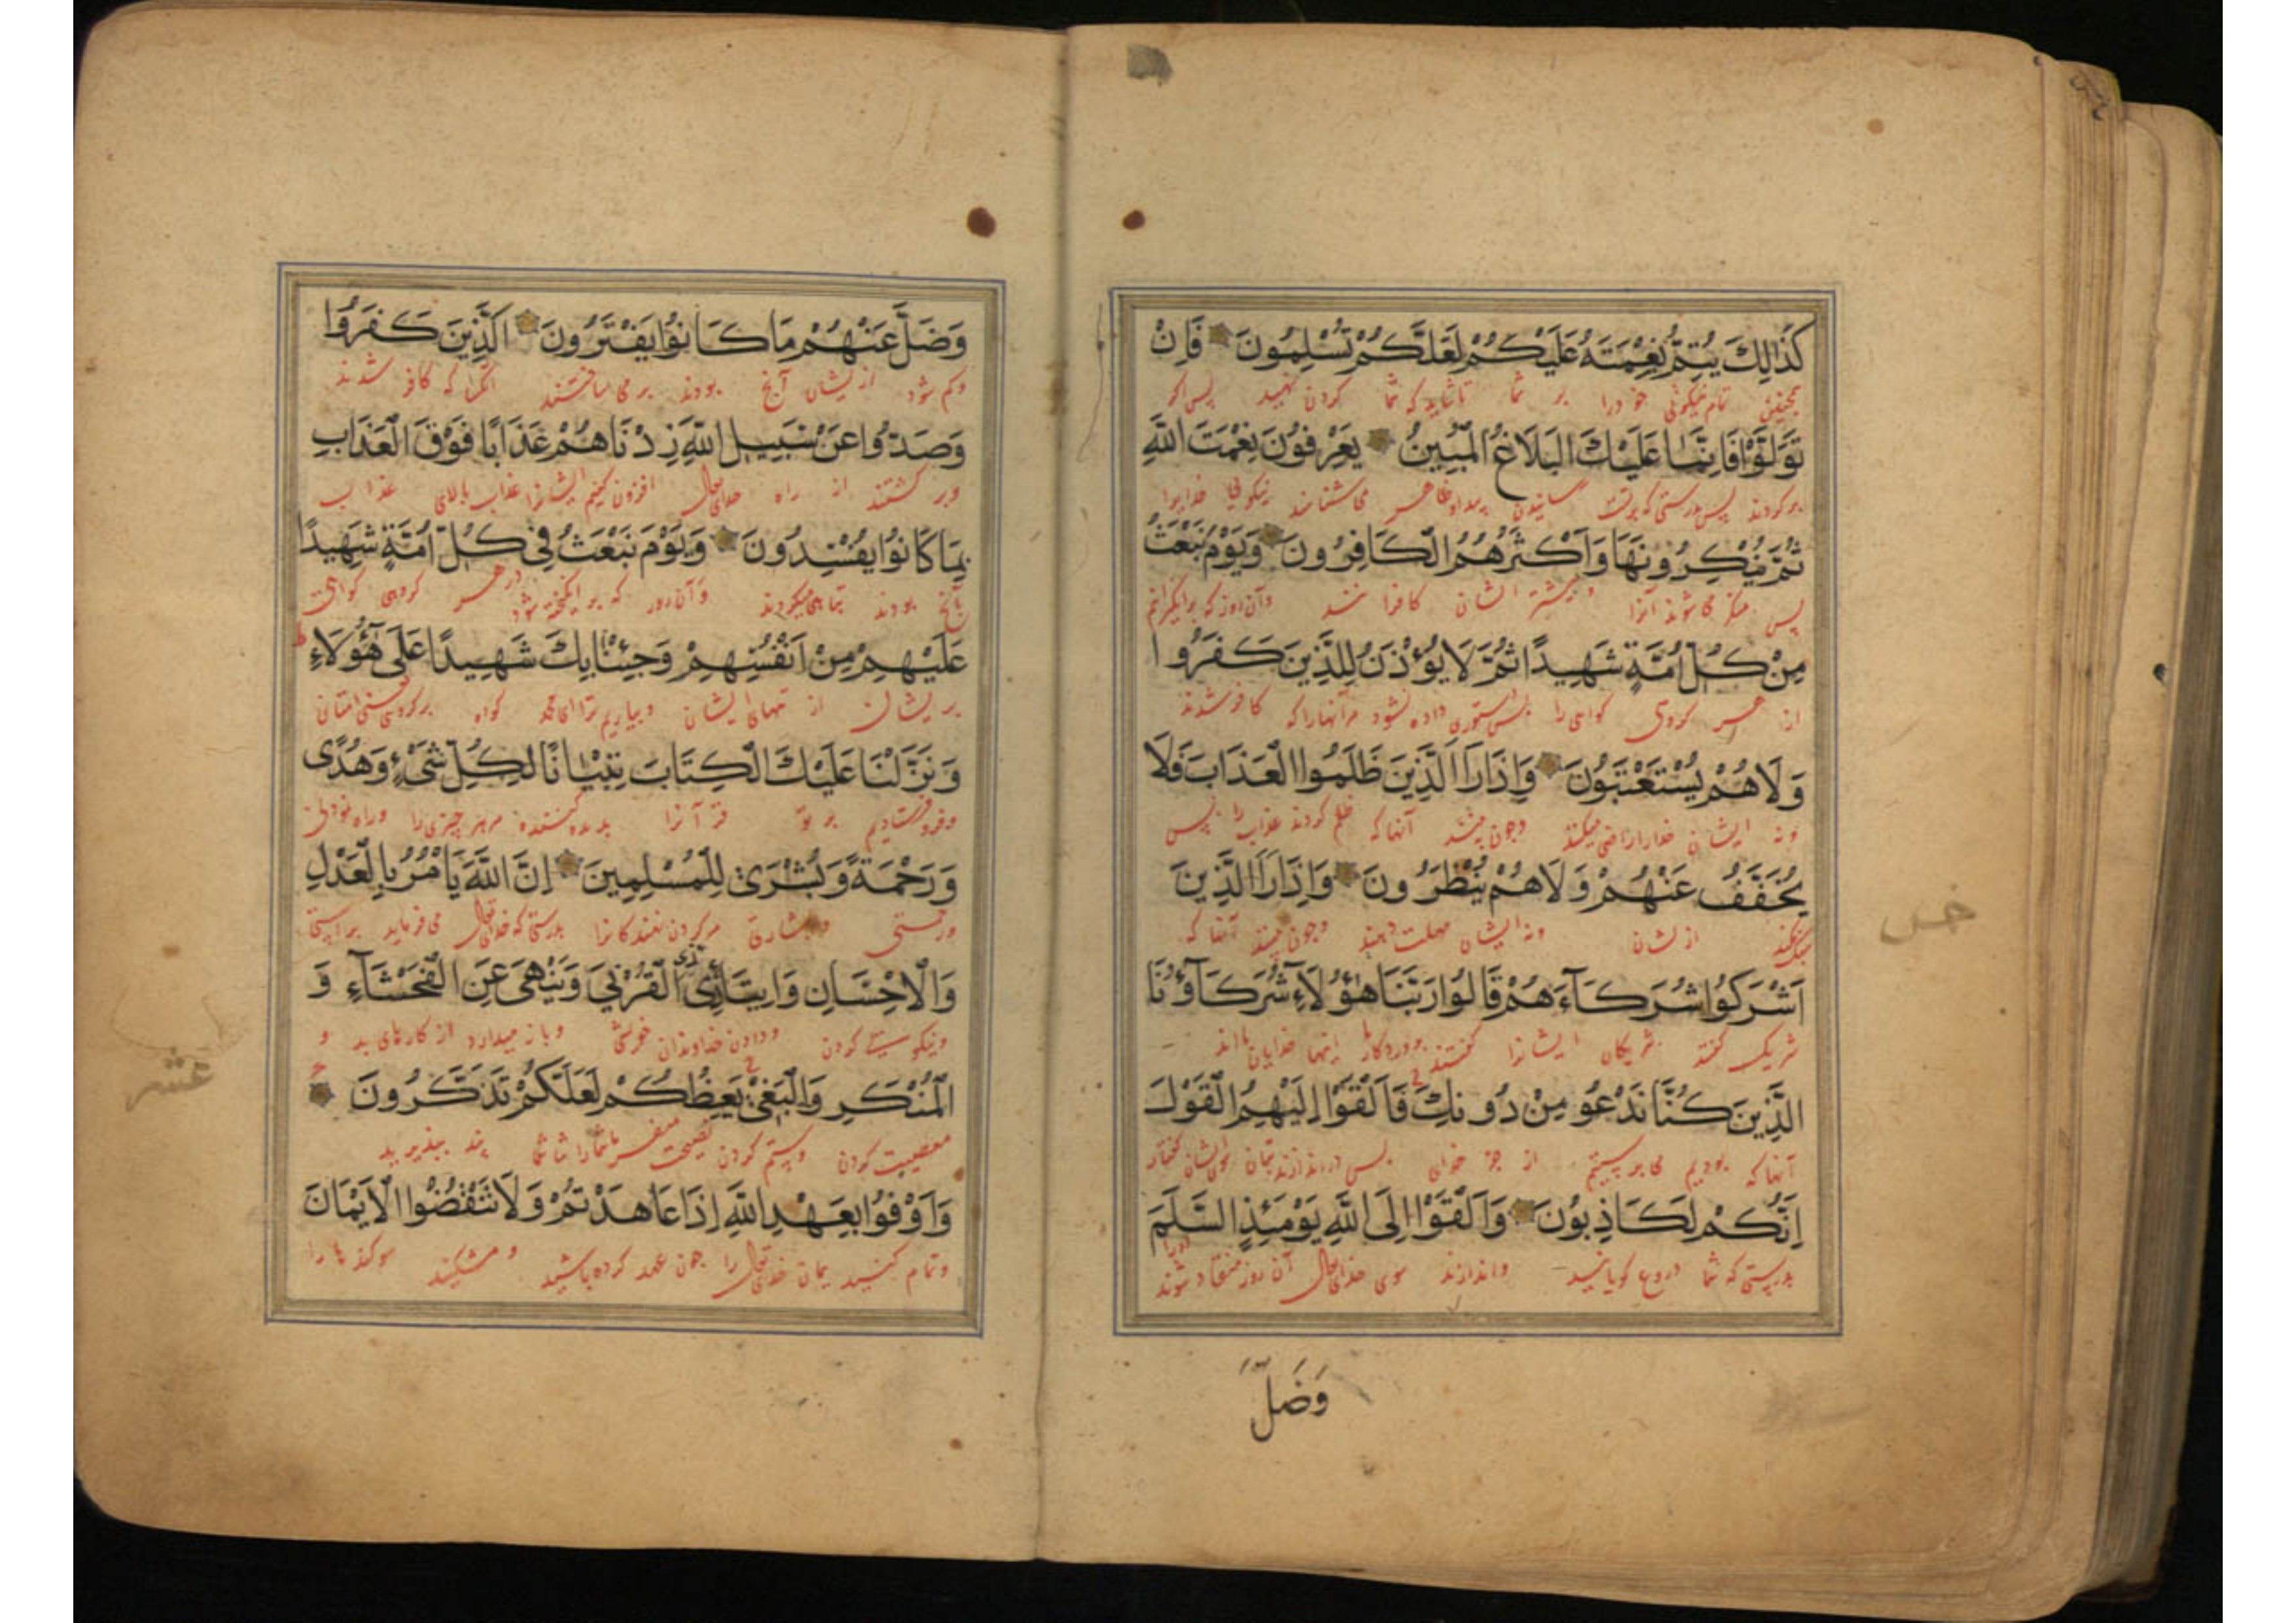 كَذَٰلِكَ يُتِمُّ نِعْمَتَهُ عَلَيْكُمْ لَعَلَّكُمْ تُسْلِمُونَ فَاِنْ
تَوَلَّوْا فَاِنَّمَا عَلَيْكَ الْبَلَاغُ الْمُبِينُ يَعْرِفُونَ نِعْمَتَ اللّٰهِ
بركردند پس بدرستى كه برتست
ثُمَّ يُنْكِرُونَهَا وَاَكْثَرُهُمُ الْكَافِرُونَ وَيَوْمَ نَبْعَثُ
پس منكر مى شوند آنرا و بيشتر ايشان كافرانند وآن روز كه برانگيزانم
مِنْ كُلِّ اُمَّةٍ شَهِيدًا ثُمَّ لَا يُؤْذَنُ لِلَّذِينَ كَفَرُوا
از هر كروهى كواهى را پس دستورى داده نشود مر آنهارا كه كافر شدند
وَلَا هُمْ يُسْتَعْتَبُونَ وَاِذَا رَاَ الَّذِينَ ظَلَمُوا الْعَذَابَ فَلَا
ونه ايشان خدارا راضى ميكنند وچون بينند آنها كه ظلم كردند عذاب را پس
يُخَفَّفُ عَنْهُمْ وَلَا هُمْ يُنْظَرُونَ وَاِذَا رَاَ الَّذِينَ
سبك نكنند از ايشان ونه ايشان مهلت دهند وچون بينند آنها كه
اَشْرَكُوا شُرَكَآءَهُمْ قَالُوا رَبَّنَا هٰؤُلَآءِ شُرَكَآؤُنَا
شريك كفتند شريكان ايشانرا كفتند پروردكارا اينها خدايان مااند
الَّذِينَ كُنَّا نَدْعُو مِنْ دُونِكَ فَاَلْقَوْا اِلَيْهِمُ الْقَوْلَ
آنها كه بوديم مى پرستيديم از جز خداى پس
اِنَّكُمْ لَكَاذِبُونَ وَاَلْقَوْا اِلَى اللّٰهِ يَوْمَئِذٍ السَّلَمَ
بدرستى كه شما دروغ كويانيد واندازند سوى خداى تعالى آن روز منقاد شوند
وَضَلَّ
وَضَلَّ عَنْهُمْ مَا كَانُوا يَفْتَرُونَ اَلَّذِينَ كَفَرُوا
وكم شود از ايشان آنچ بودند بر مى بافتند آنكرا كه كافر شدند
وَصَدُّوا عَنْ سَبِيلِ اللّٰهِ زِدْنَاهُمْ عَذَابًا فَوْقَ الْعَذَابِ
وبركشتند از راه خداى تعالى افزون كنيم ايشانرا عذاب بالاى عذاب
بِمَا كَانُوا يُفْسِدُونَ وَيَوْمَ نَبْعَثُ فِي كُلِّ اُمَّةٍ شَهِيدًا
بآنچ بودند تباهى ميكردند وآن روز كه برانگيخته شود در هر كروهى كواهى
عَلَيْهِمْ مِنْ اَنْفُسِهِمْ وَجِئْنَا بِكَ شَهِيدًا عَلَى هٰٓؤُلَاءِ
بريشان از تنهاى ايشان وبياريم ترا اى محمد كواه
وَنَزَّلْنَا عَلَيْكَ الْكِتَابَ تِبْيَانًا لِكُلِّ شَىْءٍ وَهُدًى
وفرو فرستاديم بر تو قرآنرا پديد كننده مر هر چيزى را وراه نمودن
وَرَحْمَةً وَبُشْرَى لِلْمُسْلِمِينَ اِنَّ اللّٰهَ يَاْمُرُ بِالْعَدْلِ
وبشارتى مر كردن نهندكانرا بدرستى كه خداى تعالى مى فرمايد براستى
وَالْاِحْسَانِ وَاِيتَآئِ ذِي الْقُرْبَي وَيَنْهَى عَنِ الْفَحْشَآءِ وَ
ونيكويى كردن ودادن خداوندان خويشى وباز ميدارد از كارهاى بد و
الْمُنْكَرِ وَالْبَغْيِ يَعِظُكُمْ لَعَلَّكُمْ تَذَكَّرُونَ
معصيت كردن وستم كردن نصيحت ميفرمايد شمارا تا شما پند بپذيريد
وَاَوْفُوا بِعَهْدِ اللّٰهِ اِذَا عَاهَدْتُمْ وَلَا تَنْقُضُوا الْاَيْمَانَ
وتمام كنيد پيمان خداى تعالى را چون عهد كرده باشيد ومشكنيد سوكندها را
عشر